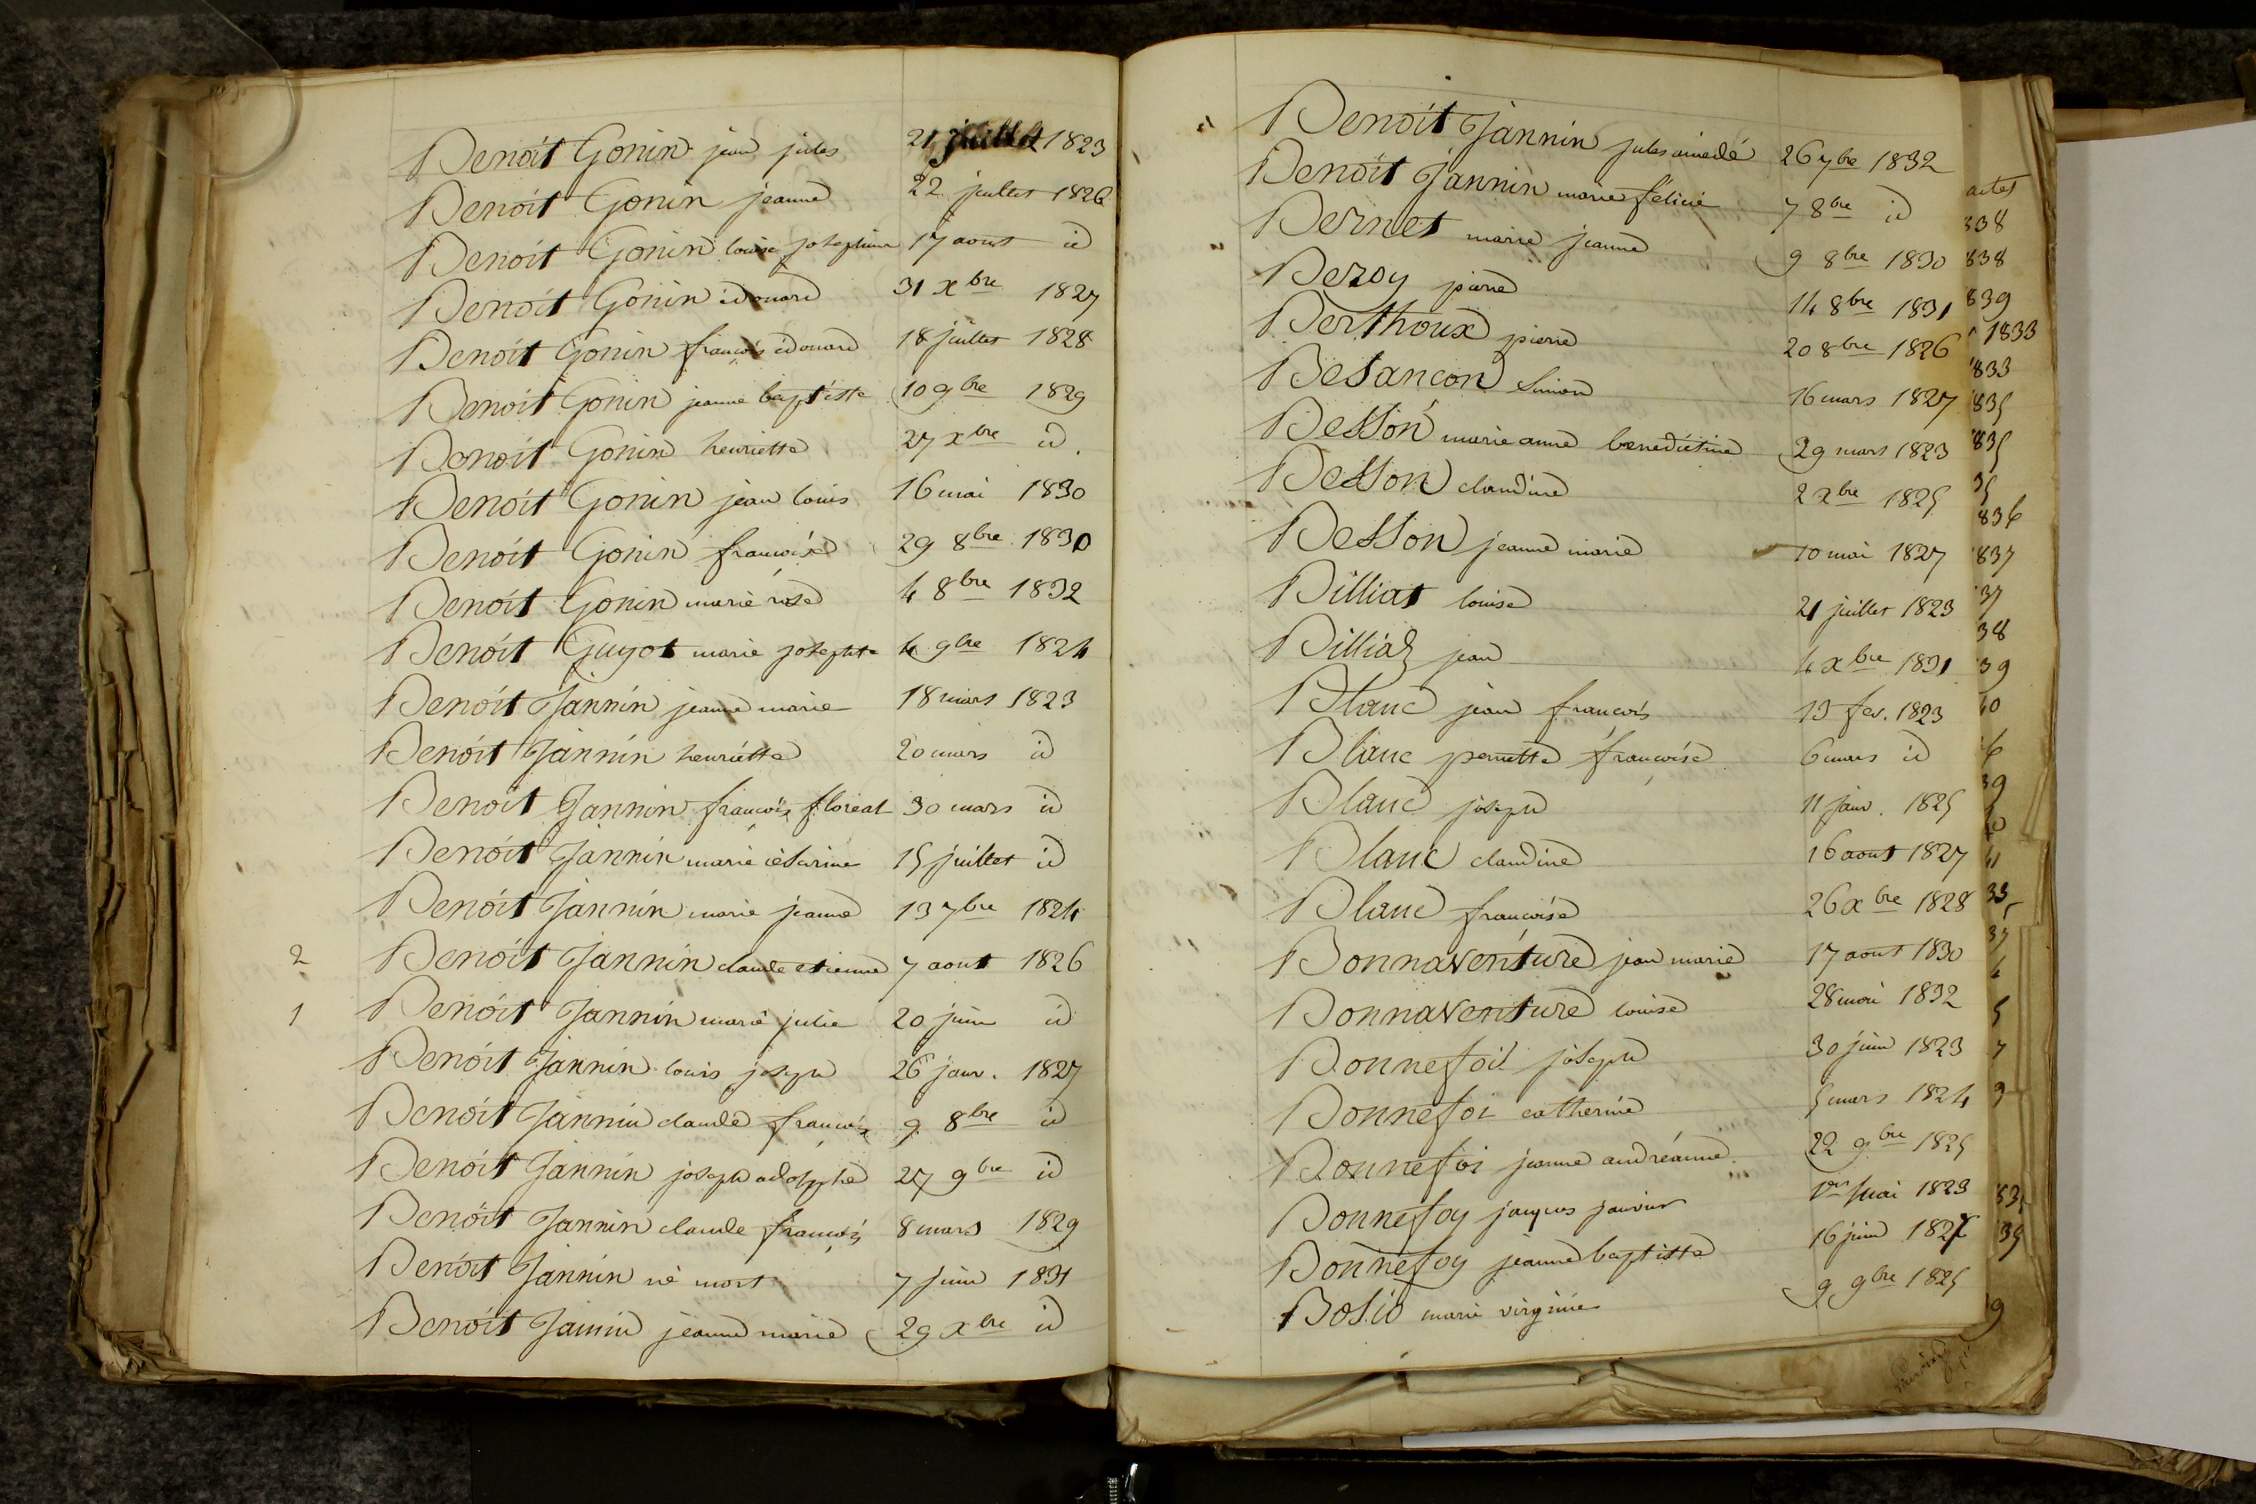 Benoit Gonin jean jules 21 juillet 1823
Benoit Gonin jeanne 22 juillet 1826
Benoit Gonin louise josephine 17 aout id
Benoit Gonin edouard 31 xbre 1827
Benoit Gonin françois edouard 18 juillet 1828
Benoit Gonin jeanne baptiste 10 9bre 1829
Benoit Gonin henriette 27 xbre id.
Benoit Gonin jean louis 16 mai 1830
Benoit Gonin françoise 29 8bre 1830
Benoit Gonin marie rose 4 8bre 1832
Benoit Guyot marie josephte 4 9bre 1824
Benoit Jannin jeanne marie 18 mars 1823
Benoit Jannin henriette 20 mars id
Benoit Jannin françois floreal 30 mars id
Benoit Jannin marie césarine 15 juillet id
Benoit Jannin marie jeanne 13 7bre 1824
2 Benoit Jannin claude etienne 7 aout 1826
1 Benoit Jannin marie julie 20 juin id
Benoit Jannin louis joseph 26 janv. 1827
Benoit Jannin claude françois 9 8bre id
Benoit Jannin joseph adolphe 27 9bre id
Benoit Jannin claude françois 8 mars 1829
Benoit Jannin né mort 7 juin 1831
Benoit Jannin jeanne marie 29 xbre id
Benoit Jannin jules amedé 26 7bre 1832
Benoit Jannin marie félicie 7 8bre id
Bernet marie jeanne 9 8bre 1830
Beroy pierre 14 8bre 1831
Berthoux pierre 20 8bre 1826
Besancon simon 16 mars 1827
Besson marie anne benedictine 29 mars 1823
Besson claudine 2 xbre 1825
Besson jeanne marie 10 mai 1827
Billiat louise 21 juillet 1823
Billiaz jean 4 xbre 1831
Blanc jean francois 13 fev. 1823
Blanc pernette françoise 6 mars id
Blanc joseph 11 janv. 1825
Blanc claudine 16 aout 1827
Blanc françoise 26 xbre 1828
Bonnaventure jean marie 17 aout 1830
Bonnaventure louise 28 mai 1832
Bonnefoi joseph 30 juin 1823
Bonnefoi catherine 5 mars 1824
Bonnefoi jeanne andréanne 22 9bre 1825
Bonnefoy jacques janvier 1er mai 1823
Bonnefoy jeanne baptiste 16 juin 1827
Bosio marie virginie 9 9bre 1825
actes
838
838
839
1833
833
835
835
35
836
837
37
38
39
40